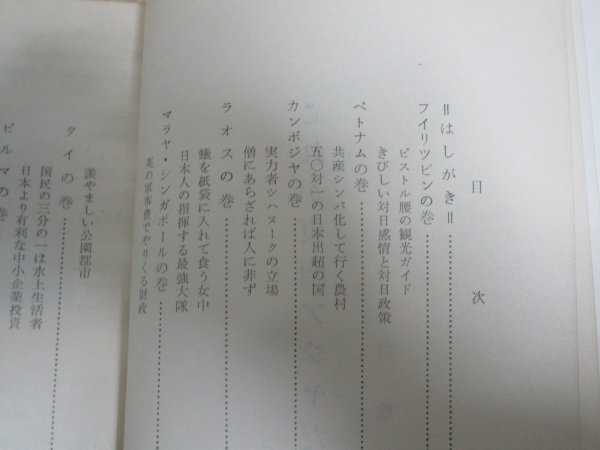 目次
‖はしがき‖
フイリッピンの巻
ピストル腰の観光ガイド
きびしい対日感情と対日政策
ベトナムの巻
共産シンパ化して行く農村
五〇対一の日本出超の国
カンボジヤの巻
実力者シハヌークの立場
僧にあらざれば人に非ず
ラオスの巻
蟻を紙袋に入れて食う女中
日本人の指揮する最強大隊
マラヤ・シンガポールの巻
英の軍事費でやりくる財政
羨やましい公園都市
タイの巻
国民の三分の一は水上生活者
日本より有利な中小企業投資
ビルマの巻